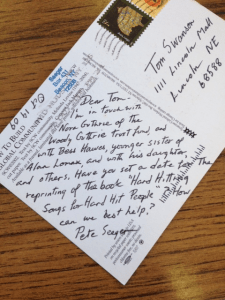 Oct 19 09
TO BUILD
GLOBAL COMMUNITY
Tom Swanson
1111 Lincoln Mall
Lincoln NE
68588
Dear Tom –
I'm in touch with
Nora Guthrie of the
Woody Guthrie trust fund, and
with Bess Hawes, younger sister of
Alan Lomax, and with his daughter,
and others. Have you set a date for the
reprinting of the book "Hard Hitting
Songs for Hard Hit People"? How
can we best help?
Pete Seeger